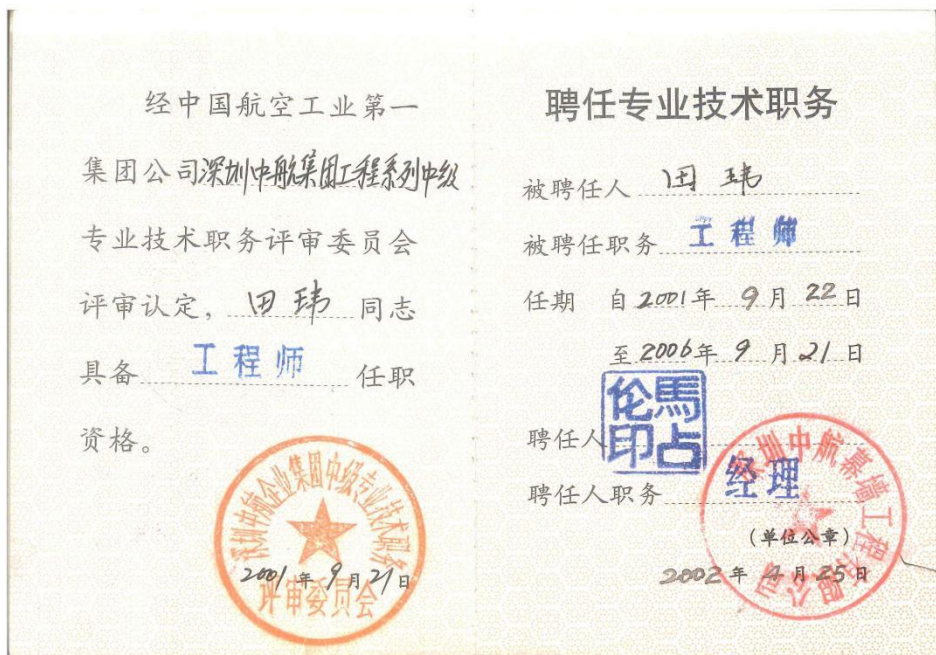 经中国航空工业第一
集团公司深圳中航集团工程系列中级
专业技术职务评审委员会
评审认定，田玮同志
具备工程师任职
资格。
深圳中航企业集团中级专业技术职务
评审委员会
2001年9月21日
聘任专业技术职务
被聘任人 田玮
被聘任职务 工程师
任期 自2001年9月22日
至2006年9月21日
聘任人
馬占伦印
聘任人职务 经理
深圳中航幕墙工程有限公司
（单位公章）
2002年4月25日